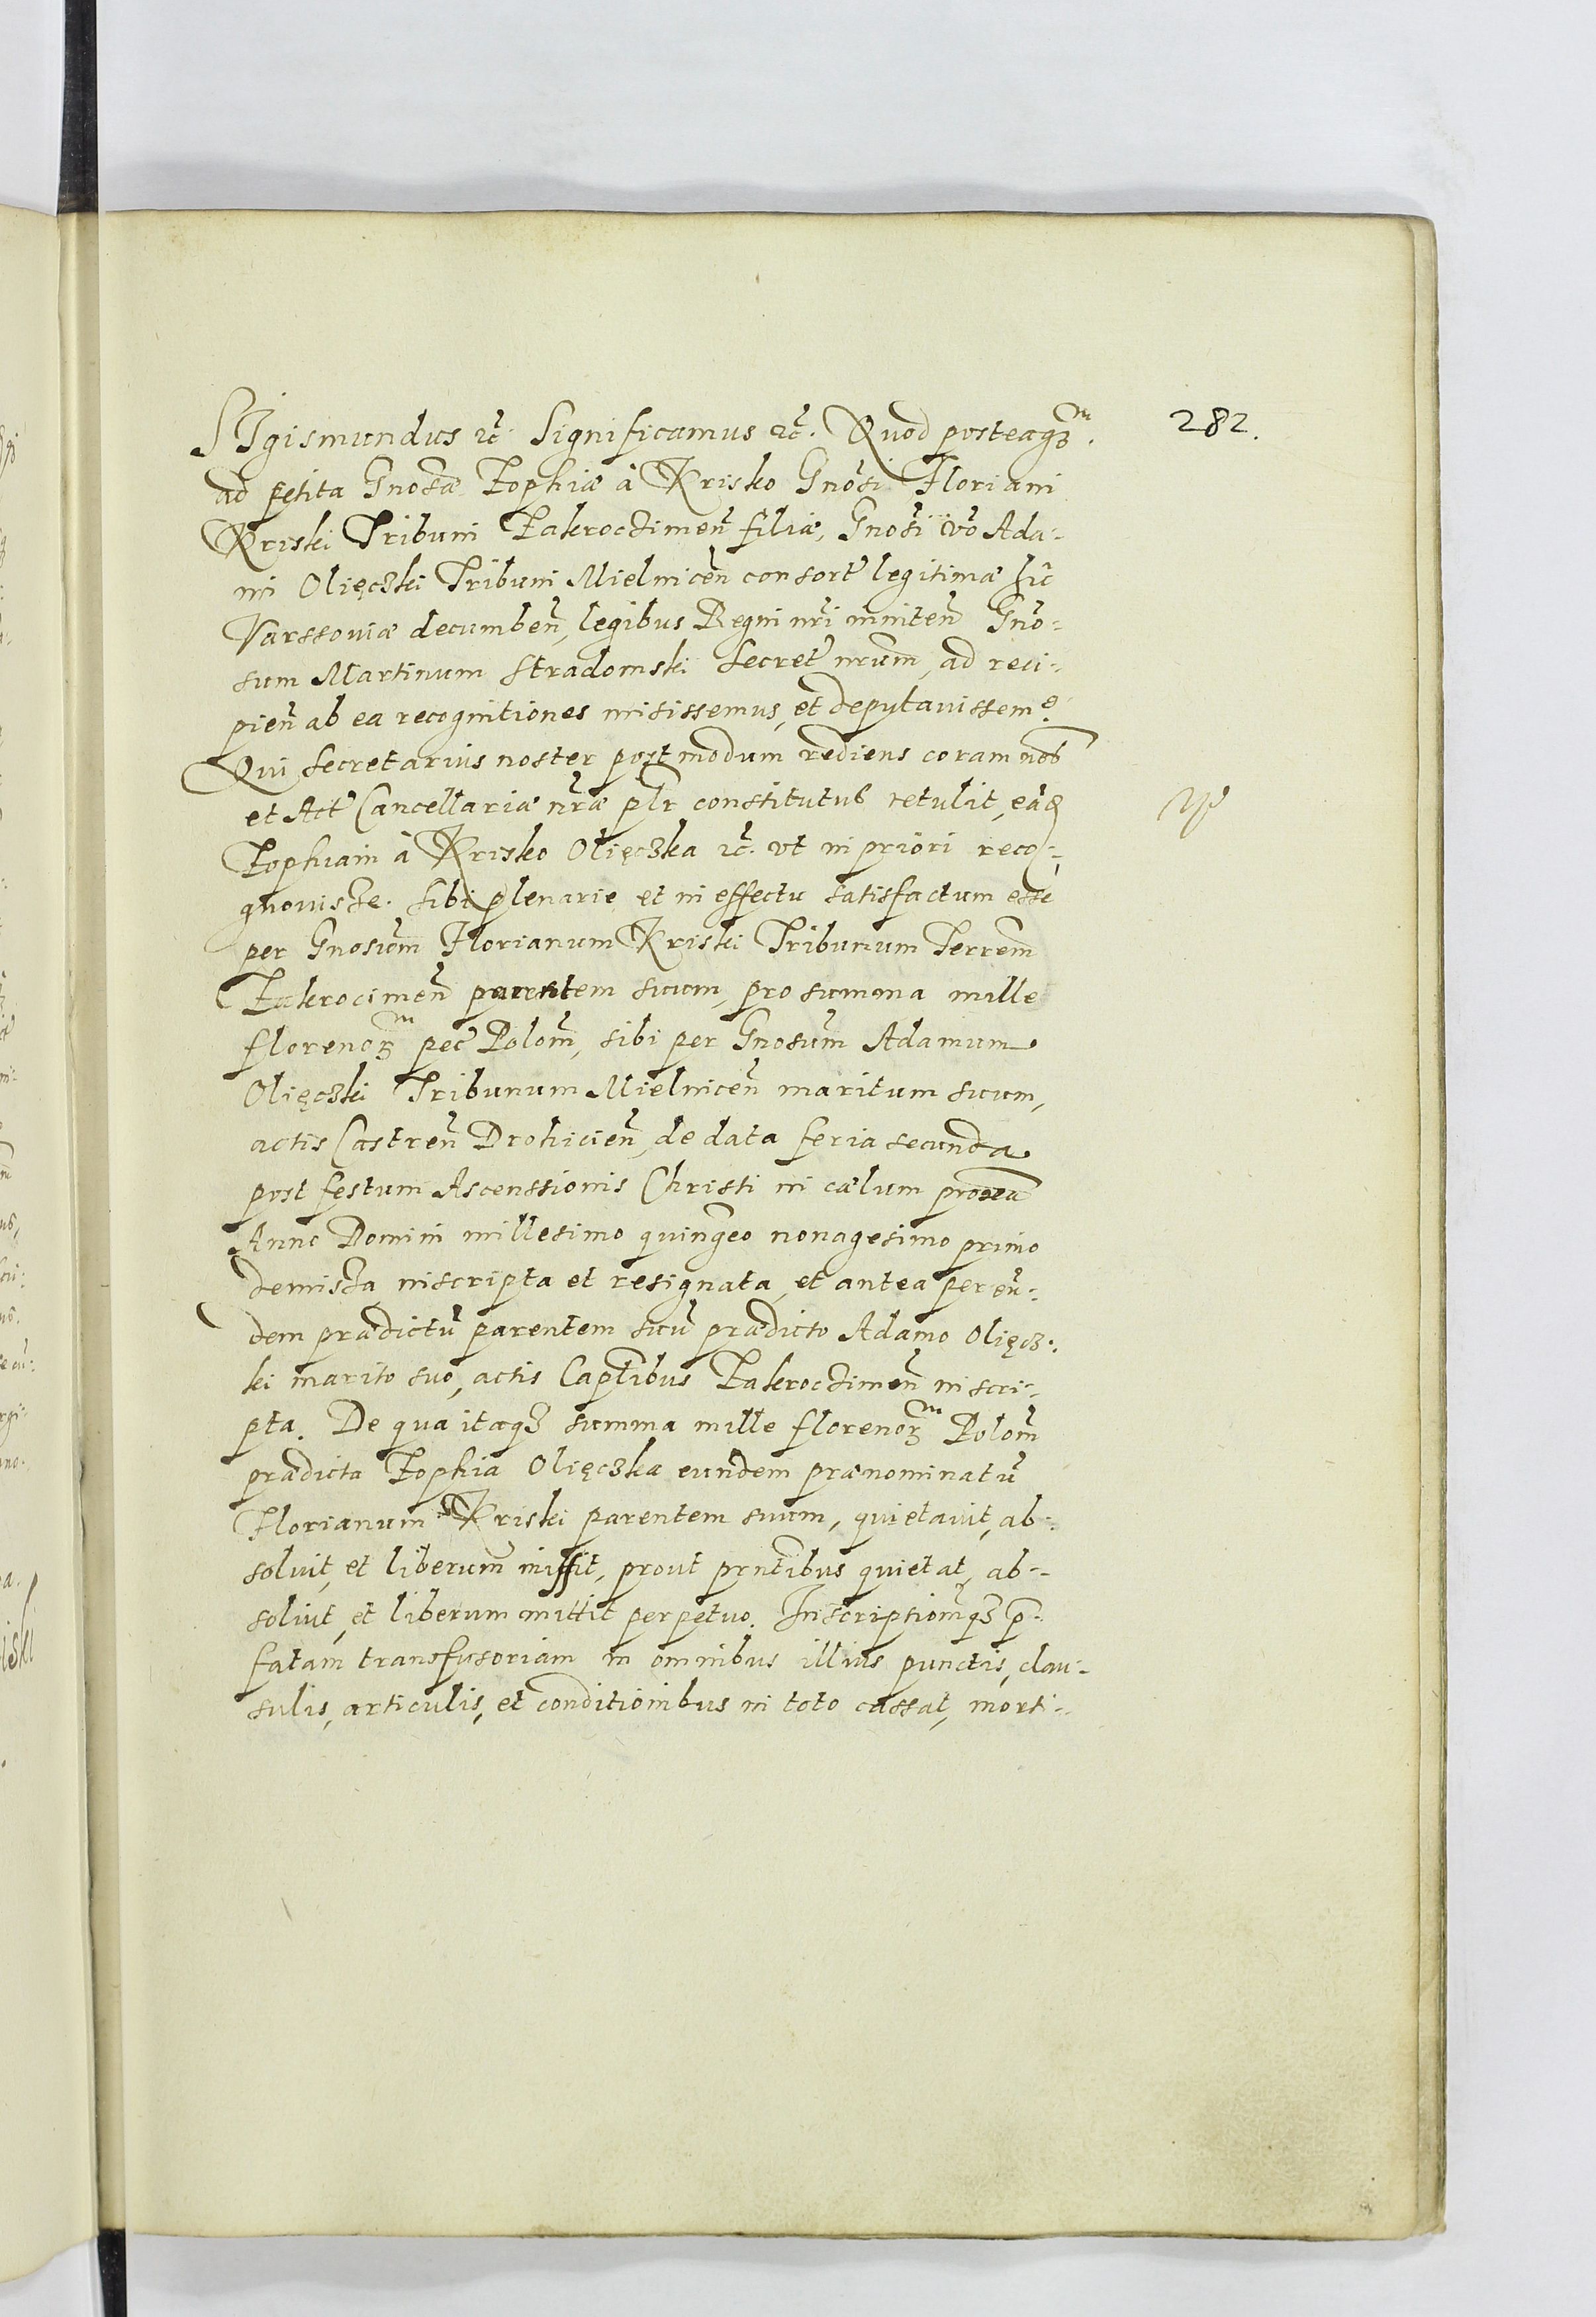 SIgismundus ⁊c̃. Significamus ⁊c̃. Quod posteaqȝᵐ. 282.
ad petita Gnosæ Zophiæ à Krisko Gnosi Floriani
Kriski Tribuni Zakroczimeñ filiæ, Gnosi v̈o Ada-
mi Olięczki Tribuni Mielniceñ consort̃ legitimæ hic̃
Varssouiæ decumbeñ, legibus Regni nr̃i inniteñ Gno-
sum Martinum Stradomski Secret̃ nrum̃, ad reci-
pieñ ab ea recognitiones misissemus, et deputauissem⁹
Qui Secretarius noster postmodum rediens coram nob̃
et Act̃ Cancellariæ nr̃æ pl̃r constitutus retulit, eãd
Zophiam à Krisko Olięczka ⁊c̃. vt in priori reco-
gnouisse. Sibi plenarie et in effectu satisfactum esse
per Gnosum̃ Florianum Kriski Tribunum Terrem̃
Zakrocimeñ parentem suum, pro summa mille
florenoꝝᵐ pec̃ Polom̃, sibi per Gnosum̃ Adamum
Olięczki Tribunum Mielniceñ maritum suum,
actis Castreñ Drohicieñ, de data feria secunda
post festum Ascenssionis Christi in cælum proxa̅
Anno Domini millesimo quingeo̅ nonagesimo primo
demissa inscripta et resignata, et antea per eũ-
dem prædictũ parentem suũ prædicto Adamo Olięcz-
ki marito suo, actis Capt̃ibus Zakroczimeñ inscri-
pta. De qua itaqȝ summa mille florenoꝝᵐ Polom̃
prædicta Zophia Olięczka eundem prænominatũ
Florianum Kriski parentem suum, quietauit, ab-
soluit, et liberum̃ misit, prout prñtibus quietat, ab-
soluit, et liberum mittit perpetuo. Inscriptiom̃qȝ p̃-
fatam transfusoriam in omnibus illius punctis, clau-
sulis, articulis, et conditionibus in toto cassat, morti-